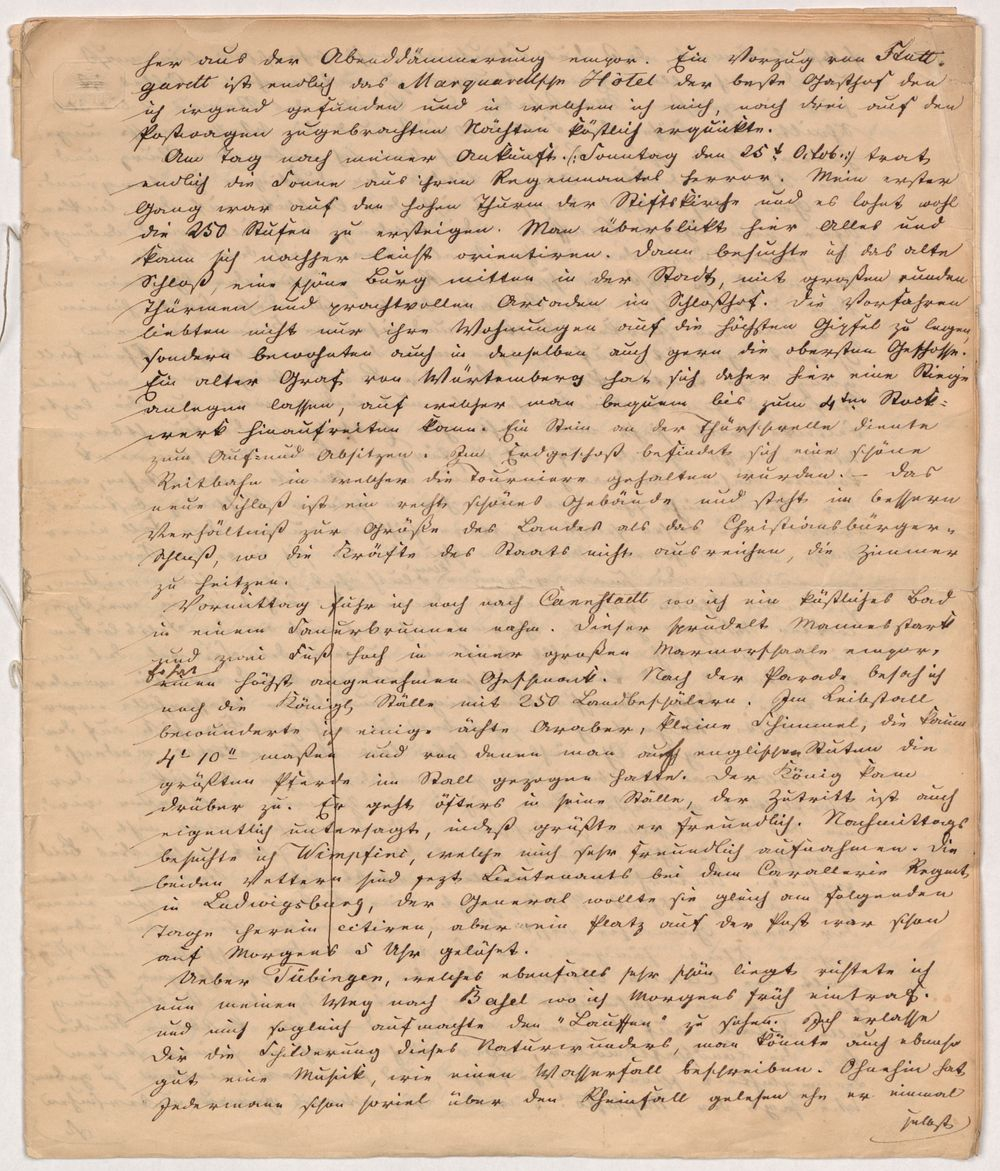 her aus der Abenddämmerung empor. Ein Vorzug von Stutt-
gardt ist endlich das Marquardtsche Hôtel der beste Gasthof den
ich irgend gefunden und in welchem ich mich, nach drei auf den
Postwagen zugebrachten Nächten köstlich erquickte.
Am Tag nach meiner Ankunft (: Sonntag den 25t Octob. :) trat
endlich die Sonne aus ihren Regenmantel hervor. Mein erster
Gang war auf den hohen Thurm der Stiftskirche und es lohnt wohl
die 250 Stufen zu ersteigen. Man überblickt hier Alles und
kann sich nachher leicht orientiren. Dann besuchte ich das alte
Schloß, eine schöne Burg mitten in der Stadt, mit großen runden
Thürmen und prachtvollen Arcaden im Schloßhof. Die Vorfahren
liebten nicht nur ihre Wohnungen auf die höchsten Gipfel zu legen,
sondern bewohnten auch in denselben auch gern die obersten Geschosse.
Ein alter Graf von Würtemberg hat sich daher hier eine Stiege
anlegen lassen, auf welcher man bequem bis zum 4ten Stock-
werk hinaufreiten kann. Ein Stein an der Thürschwelle diente
zum Auf- und Absitzen. Im Erdgeschoß befindet sich eine schöne
Reitbahn in welcher die Tourniere gehalten wurden. — Das
neue Schloß ist ein recht schönes Gebäude und steht im bessern
Verhältniß zur Größe des Landes als das Christiansbürger-
Schloß, wo die Kräfte des Staats nicht ausreichen, die Zimmer
zu heitzen.
Vormittag fuhr ich noch nach Cannstadt wo ich ein köstliches Bad
in einem Sauerbrunnen nahm. Dieser sprudelt Mannesstark
und zwei Fuß hoch in einer großen Marmorschaale empor,
hat
einen höchst angenehmen Geschmack. Nach der Parade besah ich
noch die Königl Ställe mit 250 Landbeschälern. Im Leibstall
bewunderte ich einige ächte Araber, kleine Schimmel, die kaum
4' 10" maßen und von denen man auf englischen Stuten die
größten Pferde im Stall gezogen hatte. Der König kam
drüber zu. Er geht öfters in seine Ställe, der Zutritt ist auch
eigentlich untersagt, indeß grüßte er freundlich. Nachmittags
besuchte ich Wimpfens, welche mich sehr freundlich aufnahmen. Die
beiden Vettern sind jezt Lieutenants bei dem Cavallerie Regmt
in Ludwigsburg, der General wollte sie gleich am folgenden
Tage herein citiren, aber ein Platz auf der Post war schon
auf Morgens 5 Uhr gelöset.
Ueber Tübingen, welches ebenfalls sehr schön liegt richtete ich
nun meinen Weg nach Basel wo ich Morgens früh eintraf.
und mich sogleich aufmachte den "Lauffen" zu sehen. Ich erlasse
Dir die Schilderung dieses Naturwunders, man könnte auch ebenso
gut eine Musik, wie einen Wasserfall beschreiben. Ohnehin hat
Jedermann schon soviel über den Rheinfall gelesen ehe er einmal
selbst